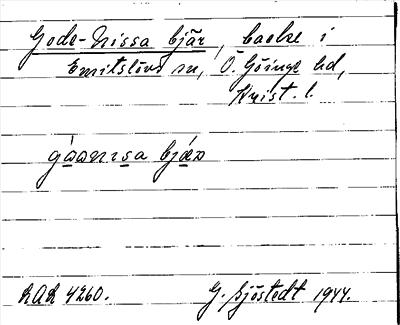 Gode-Nissa bjär, backe i
Emitslövs sn, Ö. Göinge hd,
Krist. l.
gɷɷnɪsa bjæɷ
LAL 4260. G. Sjöstedt 1944.